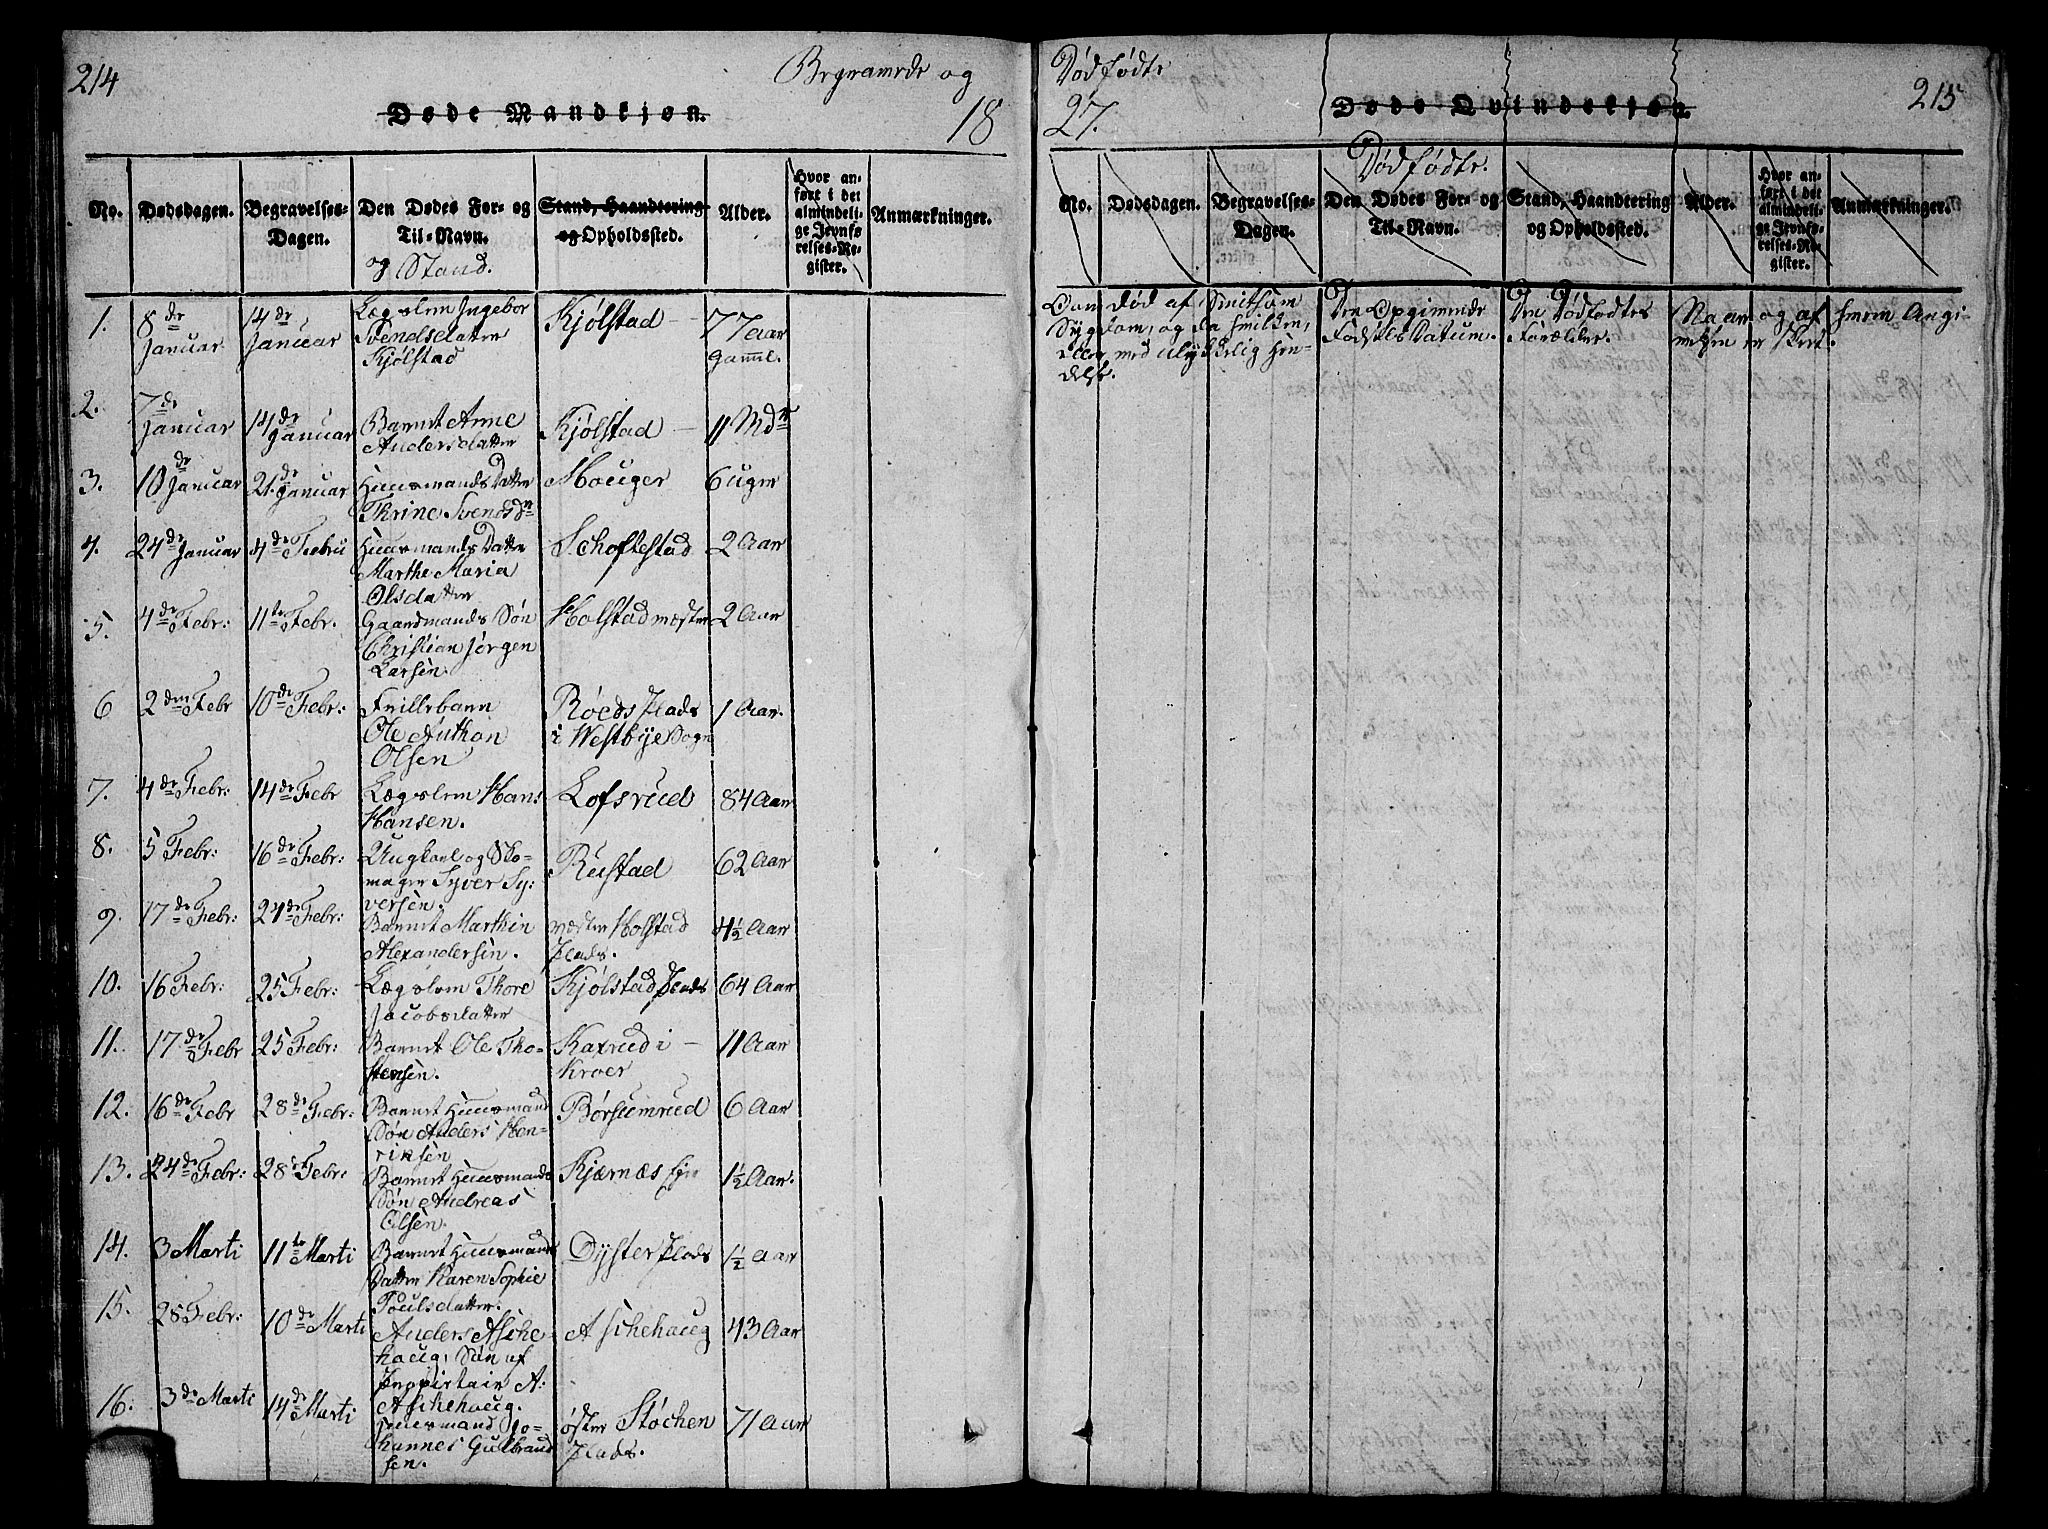 214
Begravede og
Døde Mandkjøn.
18
No.
Dødsdagen.
Begravelses-
Dagen.
Den Dødes For- og
Til-Navn.
og Stand.
Stand, Haandtering
og Opholdssted.
Alder.
Hvor an-
ført i det
almindeli-
ge Jevnfø-
relses-Re-
gister.
Anmærkninger.
1. 8de Januar 14de Januar Lægslem Ingebor Svendsdatter Kjølstad Kjølstad 77 Aar gamml.
2. 7de Januar 14de Januar Barnet Anne Andersdatter Kjølstad 11 Mdr
3. 10de Januar 21de Januar Huusmands Datter Thrine Svendsdr Houger 6 uger
4. 24de Januar 4de Febru Huusmands Datter Marthe Maria Olsdatter Schoftestad 2 Aar
5. 4de Febr: 11te Febr. Gaardmands Søn Christian Jørgen Larsen Holstad næster 2 Aar
6 2den Febr 10de Febr: Frillebarn Ole Anthon Olsen Røeds Plads i Westbye Sogn 1 Aar.
7. 4de Febr: 14de Febr Lægslem Hans Hansen. Lofsrud 84 Aar
8. 5 Febr: 16de Febr: Ungkarl og Sko- mager Syver Sy- versen. Rustad 62 Aar
9. 17de Febr: 24de Febr: Barnet Marthin Alexandersen. væster Holstad Plads. 4½ Aar
10. 16 Febr: 25 Febr: Lægslem Thore Jacobsdatter Kjølstad Plads 64 Aar
11. 17de Febr 25 Febr: Barnet Ole Tho- stensen. Kaxrud i Kroer 11 Aar
12. 16de Febr 28de Febr: Barnet Huusmands Søn Anders Hen- riksen Børsumrud 6 Aar
13. 24de Febr: 28de Febr: Barnet Huusmands Søn Andreas Olsen. Kjærnæs 1½ Aar.
14. 3 Marti 11te Marti Barnet Huusmands Datter Karen Sophie Poulsdatter. Dyster Plads 1½ Aar
15. 28 Febr: 10de Marti Anders Asche- houg, Søn af A: Aschehoug. Aschehoug 43 Aar
16. 3de Marti 14de Marti Huusmand Jo- hannes Gulbrand- sen. øster Støchen Plads. 71 Aar
Dødfødte
27.
Døde Qvindekjøn.
215
Dødfødte.
No.
Dødsdagen.
Begravelses-
Dagen.
Den Dødes For- og
Til-Navn.
Stand, Haandtering
og Opholdssted.
Alder.
Hvor an-
ført i det
almindeli-
ge Jevnfø-
relses-Re-
gister.
Anmærkninger.
Om død af Smitsom
Sygdom, og da hvilken,
eller med ulykkelig Hæn-
delse.
Den Opgivende
Fødsels Datum.
Den Dødfødtes
Forældre.
Naar og af hvem Angi-
velsen er skeet.